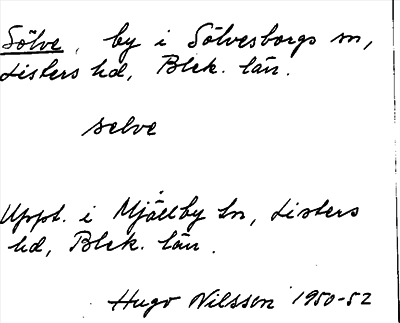 Sölve, by i Sölvesborgs sn,
Listers hd, Blek. län.
selve
Uppt. i Mjällby sn, Listers
hd, Blek. län.
Hugo Nilsson 1950-52